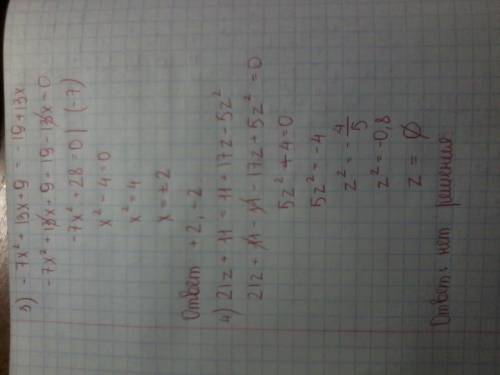 3) -7x² + 13x + 9 = -19 + 13x
-7x² + 13x + 9 = 19 - 13x = 0
-7x² + 28 = 0 | (-7)
x² - 4 = 0
x² = 4
x = ± 2
Ответ +2, -2
4) 21z + 11 = 11 + 17z - 5z²
21z + 11 - 11 - 17z + 5z² = 0
5z² + 4 = 0
5z² = -4
z² = -4/5
z² = -0,8
z = ∅
Ответ: нет решения.